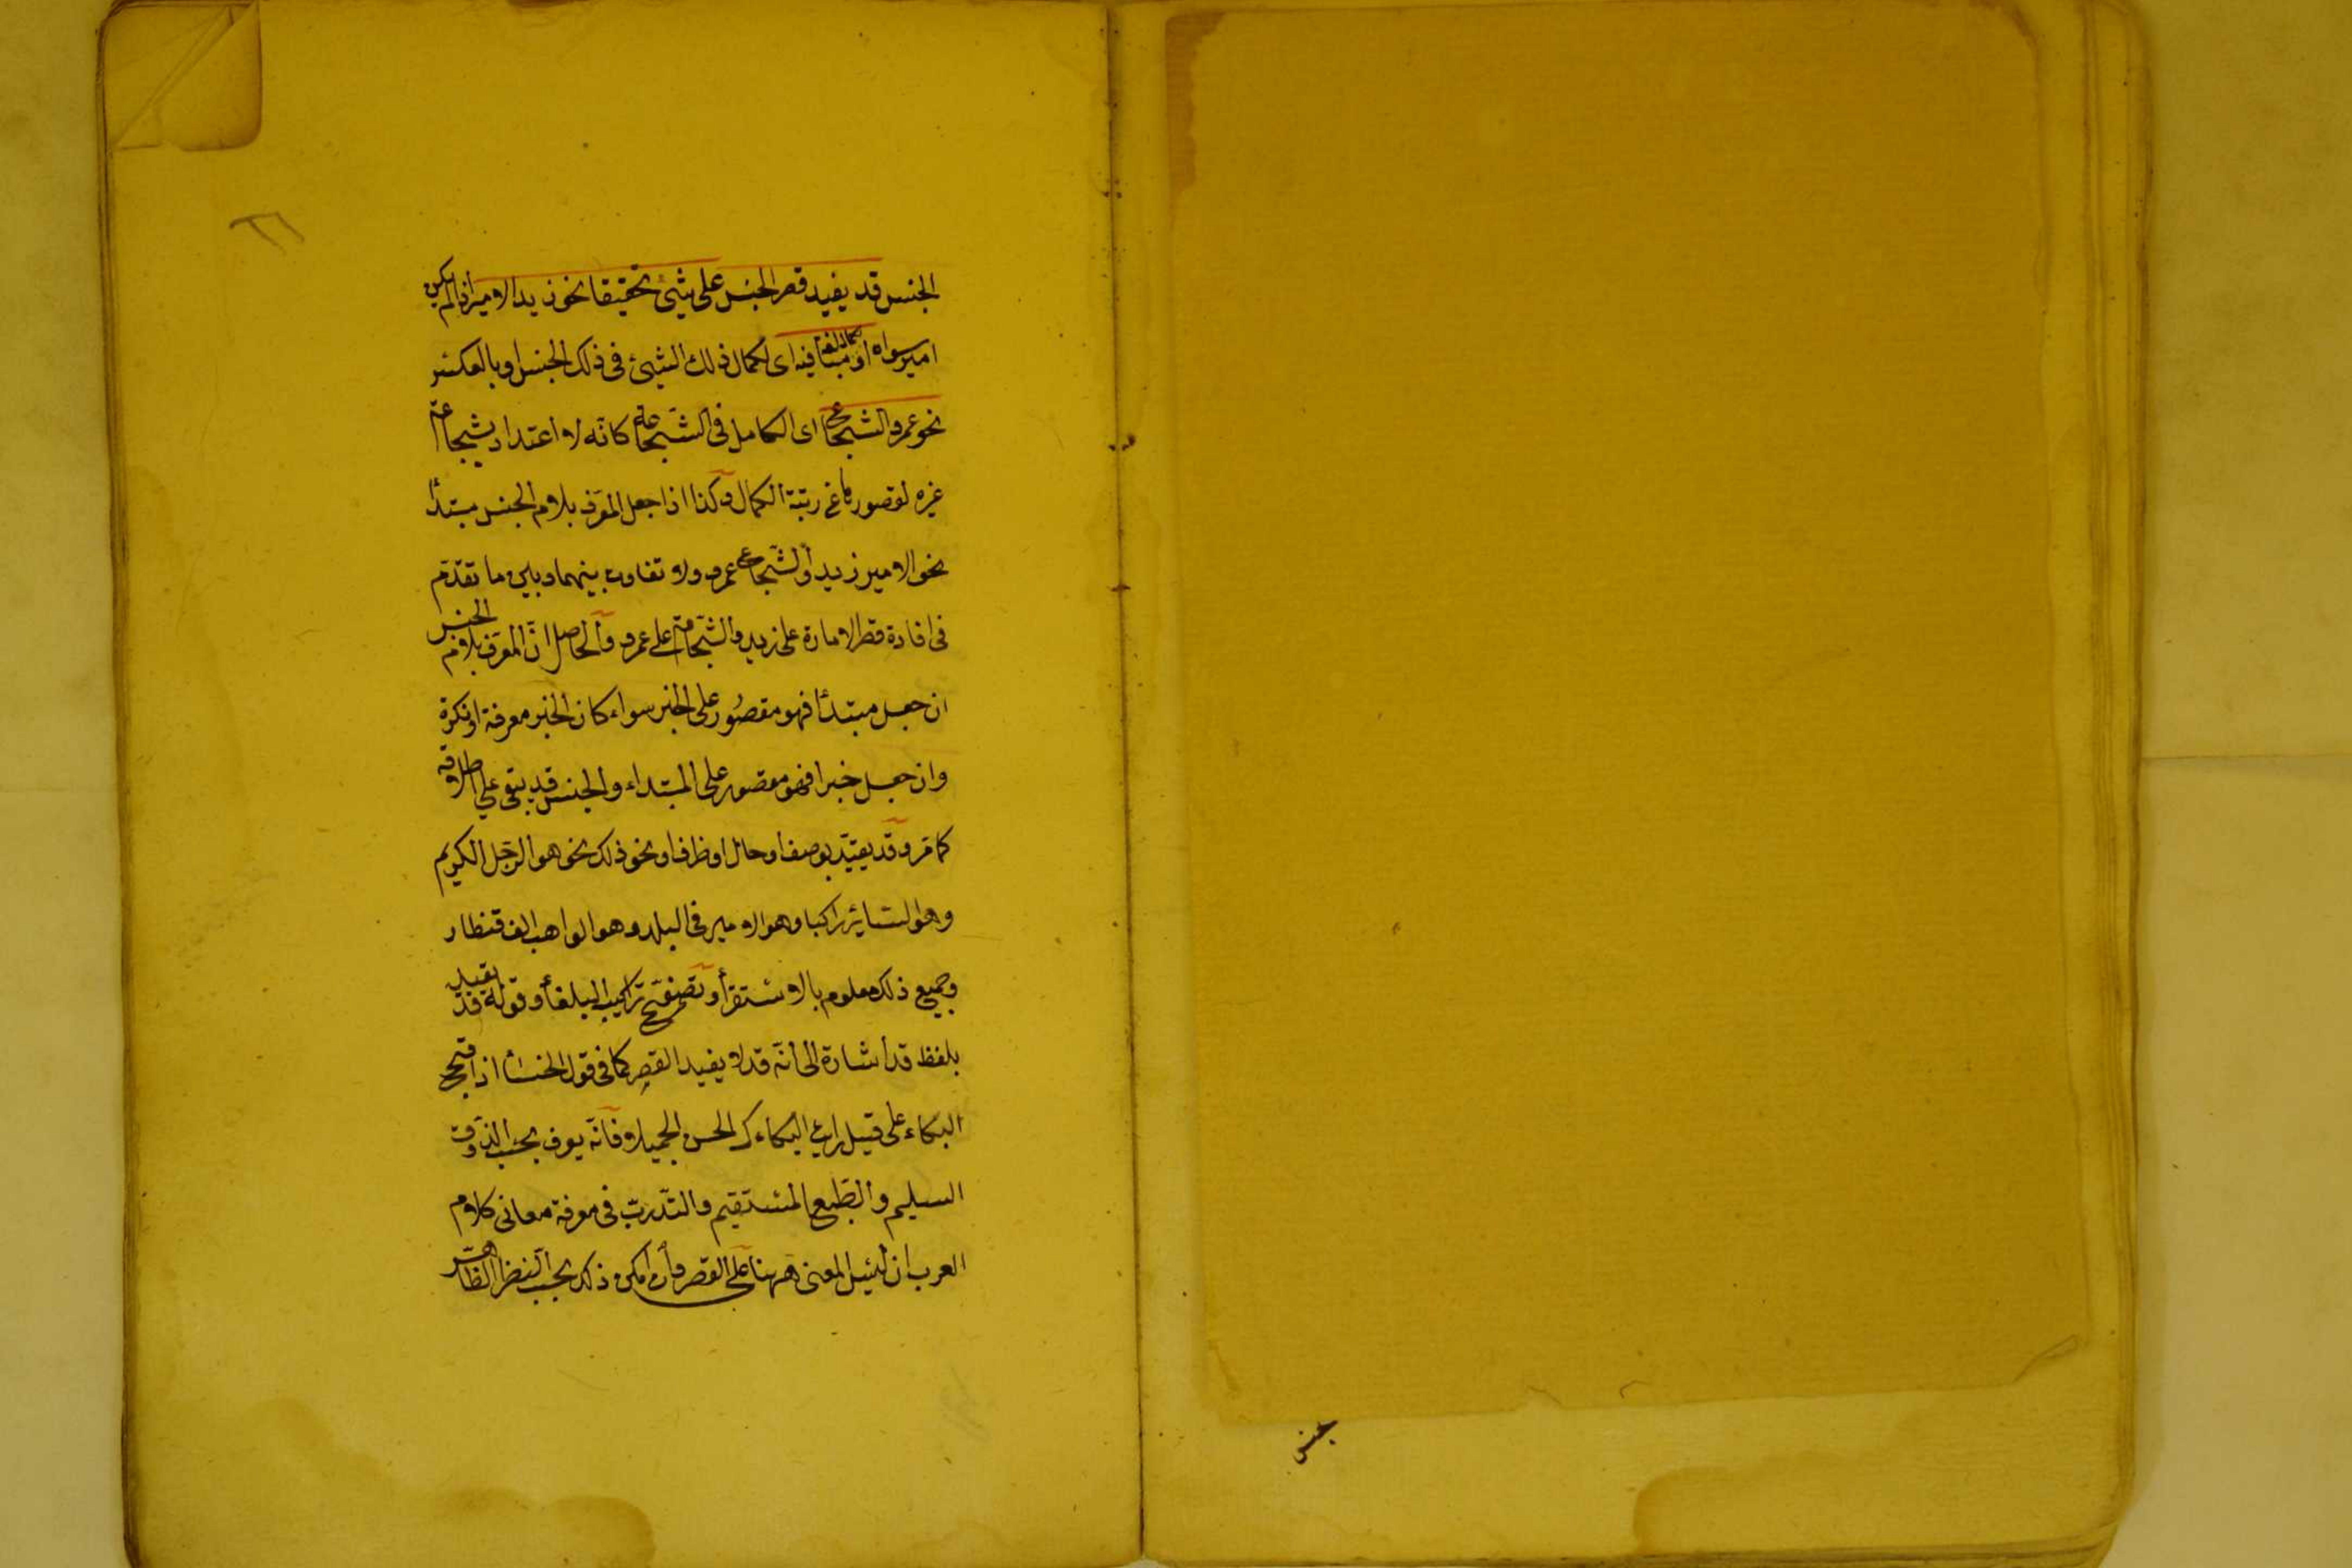 الجنس قد يفيد قصر الجنس على شيئ تحقيقا نحو زيد الامير اذا لم يكن
امير سواه او مبالغة لكماله فيه اى لكمال ذلك الشيئ فى ذلك الجنس او بالعكس
نحو عمرو الشجاع اى الكامل فى الشجاعة كانه لا اعتداد بشجاعة
غيره لقصورها عن رتبة الكمال وكذا اذا جعل المعرف بلام الجنس مبتدأ
نحو الامير زيد والشجاع عمرو ولا تفاوت بينهما وبين ما تقدم
فى افادة قصر الامارة على زيد والشجاعة على عمرو والحاصل ان المعرف بلام الجنس
ان جعل مبتدأ فهو مقصور على الخبر سواء كان الخبر معرفة او نكرة
وان جعل خبرا فهو مقصور على المبتداء والجنس قد يبقى على اطلاقه
كما مر وقد يقيد بوصف او حال او ظرف او نحو ذلك نحو هو الرجل الكريم
وهو السائر راكبا وهو الامير فى البلد وهو الواهب الف قنطار
وجميع ذلك معلوم بالاستقرأ وتصفح تراكيب البلغأ وقوله قد يفيد
بلفظ قد اشارة الى انه قد لا يفيد القصر كما فى قول الخنسأ اذا قبح
البكاء على قتيل رايت البكاءك الحسن الجميلا فانه يعرف بحسب الذوق
السليم والطبع المستقيم والتدرب فى معرفة معانى كلام
العرب ان ليس المعنى ههنا على القصر وان امكن ذلك بحسب النظر الظاهر
الجنس